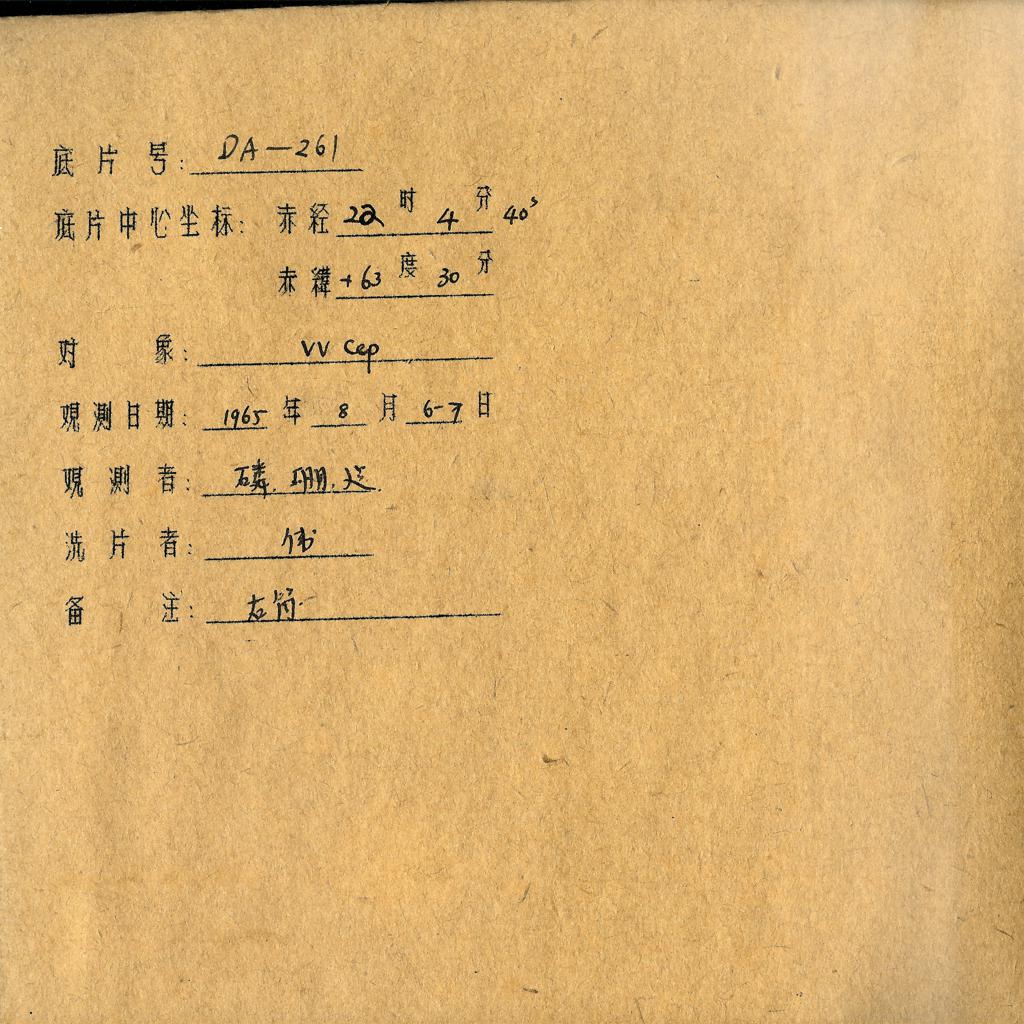 底片号: DA—261
底片中心坐标: 赤经 22 时 4 分 40ˢ
赤緯 +63 度 30 分
对象: VV Cep
观测日期: 1965 年 8 月 6-7 日
观测者: 磷.珊.
洗片者: 伟
备注: 右筒.